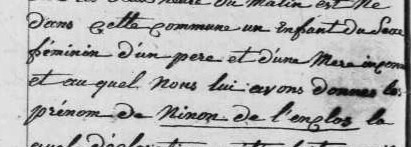 heure du matin est né
dans cette commune un enfant du sexe
féminin d'un pere et d'une Mere incon
et au quel nous lui avons donnés le
prénom de Ninon de l'enclos la
quel